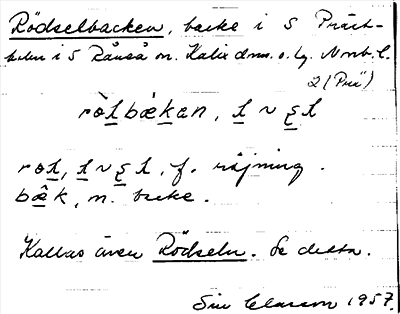 Rödselbacken, backe i S Präst-
holm i S Rånså m. Kalix dnm. o. lg. Nrrb. l.
2 (Prä)
ròtbækan, t ~ t
rot, t ~ t, f. röjning.
bæk, m. backe.
Kallas även Rödseln. Se detta.
Siv Clarson 1957.